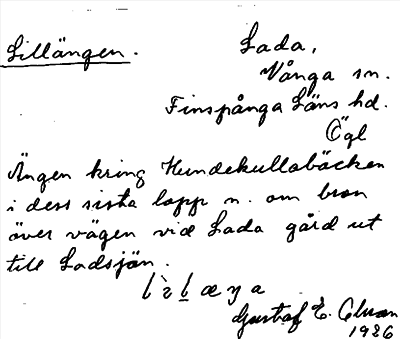 Lillängen.
Lada,
Vånga sn.
Finspånga Läns hd.
Ögl
Ängen kring Hundekullabäcken
i dess sista lopp n. om bron
över vägen vid Lada gård ut
till Ladsjön.
Gustaf E.
1926